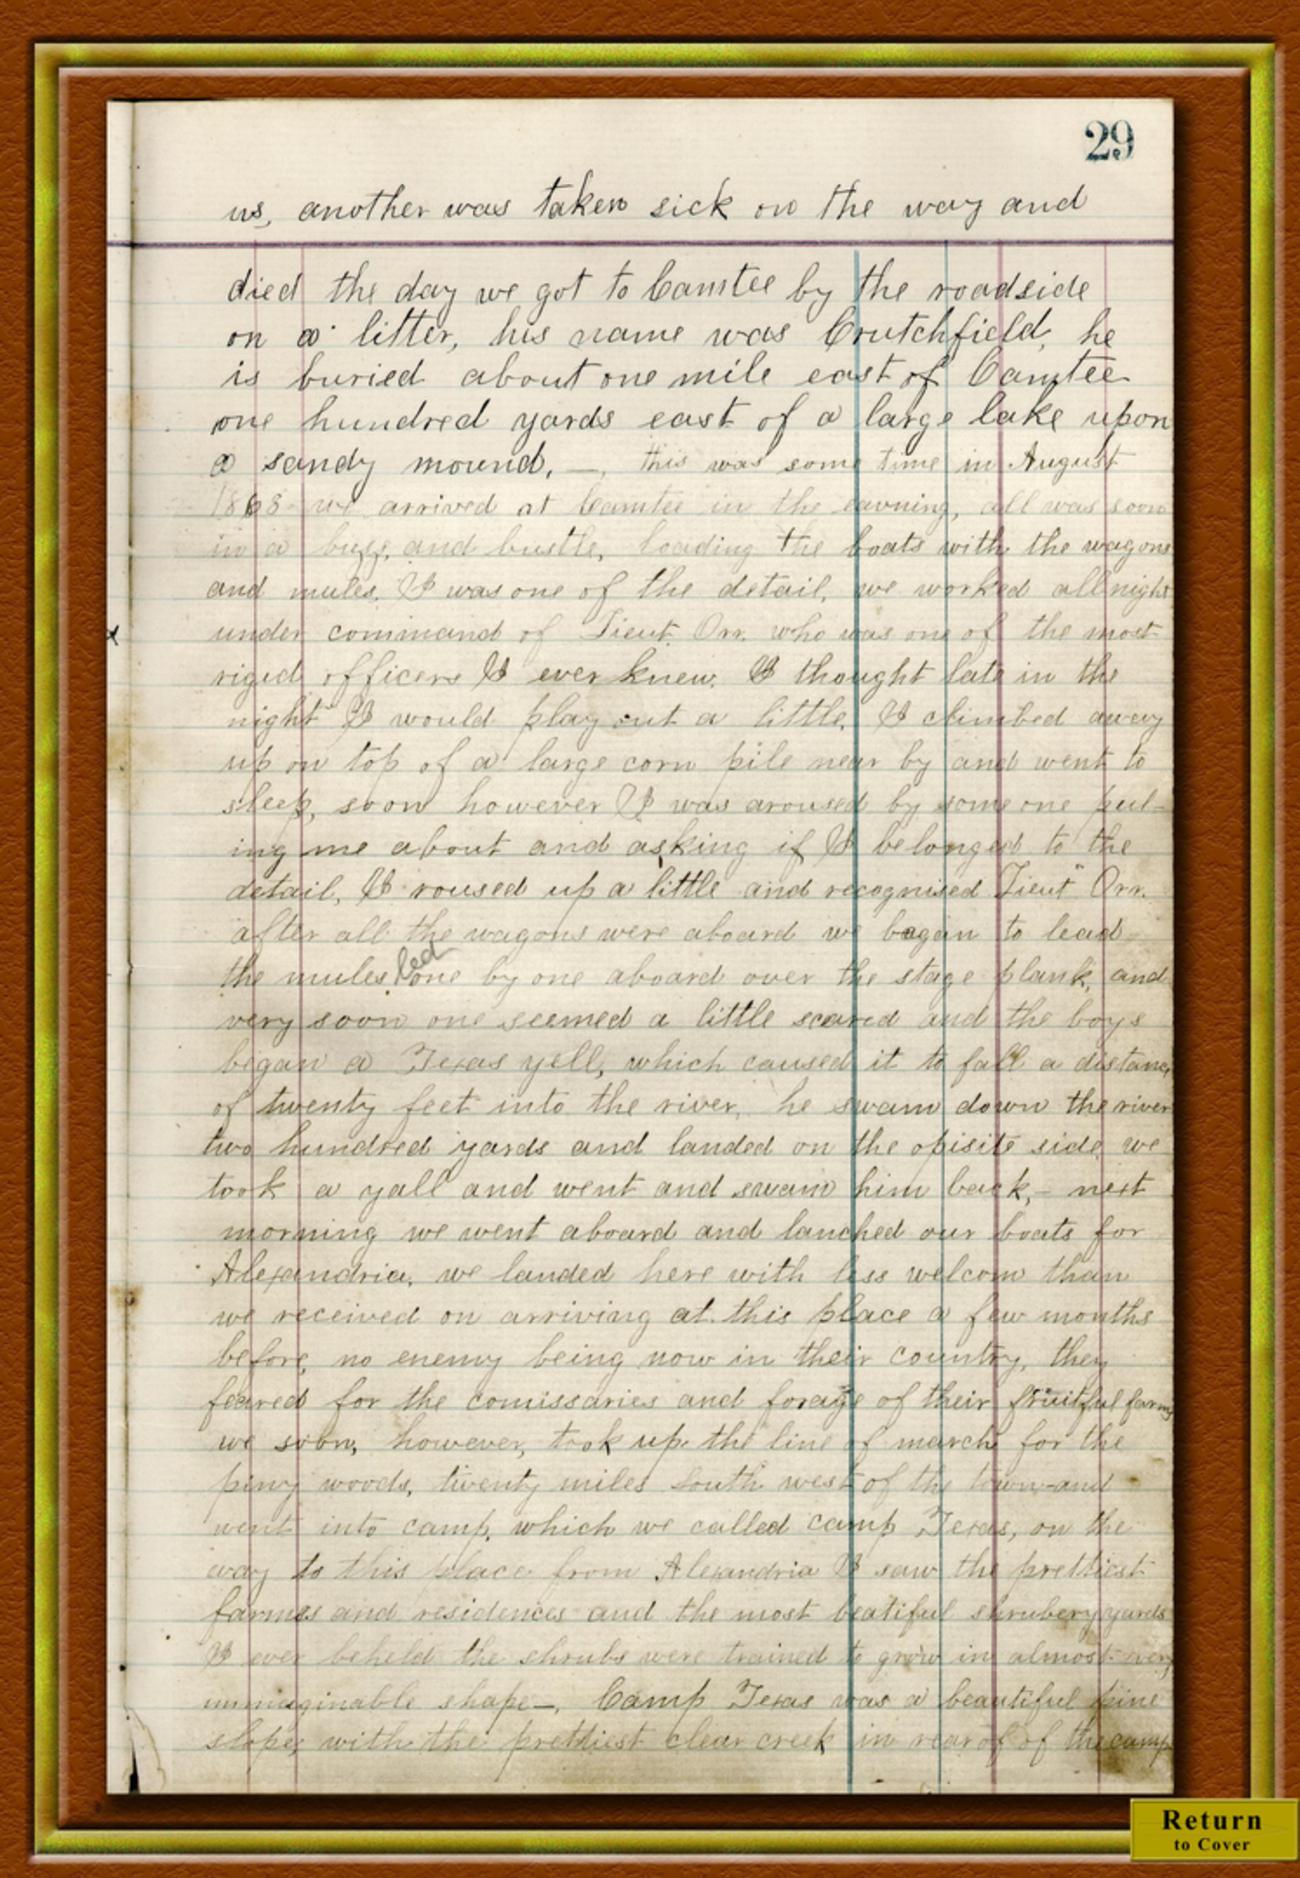 29
us, another was taken sick on the way and
died the day we got to Camtee by the roadside
on a litter, his name was Crutchfield, he
is buried about one mile east of Camtee
one hundred yards east of a large lake upon
a sandy mound, —, this was some time in August
1863 we arrived at Camtee in the evening, all was soon
in a buzz, and bustle, loading the boats with the wagons
and mules. I was one of the detail, we worked all night
under command of Lieut. Orr. who was one of the most
rigid officers I ever knew. I thought late in the
night I would play out a little. I climbed away
up on top of a large corn pile near by and went to
sleep, soon however I was aroused by some one pul-
ing me about and asking if I belonged to the
detail, I roused up a little and recognised Lieut Orr.
after all the wagons were aboard we began to lead
the mules, led one by one aboard over the stage plank, and
very soon one seemed a little scared and the boys
began a Texas yell, which caused it to fall a distance
of twenty feet into the river, he swam down the river
two hundred yards and landed on the opisite side we
took a yall and went and swam him back, - next
morning we went aboard and lanched our boats for
Alexandria, we landed here with less welcom than
we received on arriving at this place a few months
before, no enemy being now in their country, they
feared for the comissaries and forage of their fruitful farms
we soon, however, took up the line of march for the
piny woods, twenty miles south west of the town and
went into camp, which we called camp Texas, on the
way to this place from Alexandria I saw the prettiest
farmes and residences and the most beatiful shrubery yards
I ever beheld the shrubs were trained to grow in almost every
immaginable shape—, Camp Texas was a beautiful pine
slope, with the prettiest clear creek in rear of of the camp
Return
to Cover